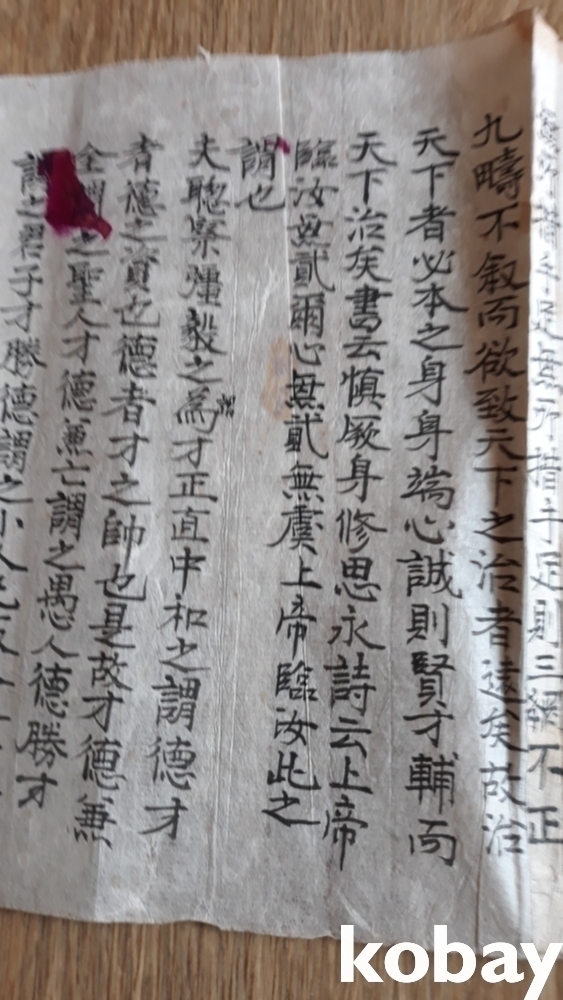 所措手足無所措手足則三綱不正
九疇不叙而欲致天下之治者遠矣故治
天下者必本之身身端心誠則賢才輔而
天下治矣書云慎厥身修思永詩云上帝
臨汝無貳爾心無貳無虞上帝臨汝此之
謂也
夫聡察彊毅之為才正直中和之謂德才
謂
者德之資也德者才之帥也是故才德兼
全謂之聖人才德兼亡謂之愚人德勝才
謂之君子才勝德謂之小人
kobay